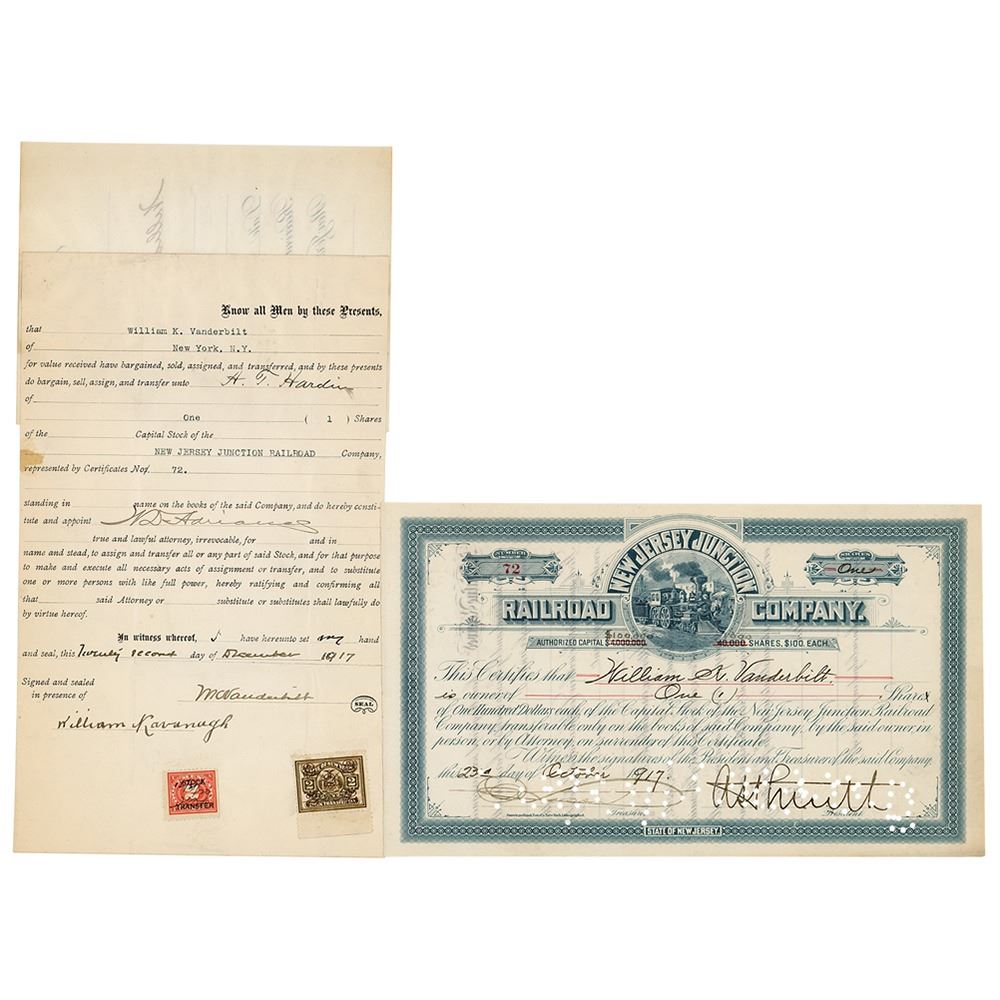 Know all Men by these Presents,
that William K. Vanderbilt
of New York, N.Y.
for value received have bargained, sold, assigned, and transferred, and by these presents
do bargain, sell, assign, and transfer unto H. T. Hardin
of
One ( 1 ) Shares
of the Capital Stock of the
NEW JERSEY JUNCTION RAILROAD Company,
represented by Certificates Nos. 72.
standing in name on the books of the said Company, and do hereby consti-
tute and appoint
true and lawful attorney, irrevocable, for and in
name and stead, to assign and transfer all or any part of said Stock, and for that purpose
to make and execute all necessary acts of assignment or transfer, and to substitute
one or more persons with like full power, hereby ratifying and confirming all
that said Attorney or substitute or substitutes shall lawfully do
by virtue hereof.
In witness whereof, I have hereunto set my hand
and seal, this Twenty second day of December 1917
Signed and sealed
in presence of
WKVanderbilt
SEAL
William Kavanagh
STOCK
TRANSFER
2 2
NUMBER
72
NEW JERSEY JUNCTION
SHARES
One
RAILROAD COMPANY.
AUTHORIZED CAPITAL $4,000,000. 40,000 SHARES, $100. EACH.
This Certifies that William K. Vanderbilt
is owner of One (1) Shares
of One Hundred Dollars each, of the Capital Stock of the New Jersey Junction Railroad
Company, transferable only on the books of said Company, by the said owner in
person, or by Attorney, on surrender of this Certificate.
Witness the signatures of the President and Treasurer of the said Company,
this 23d day of October 1917.
Treasurer President
STATE OF NEW JERSEY.